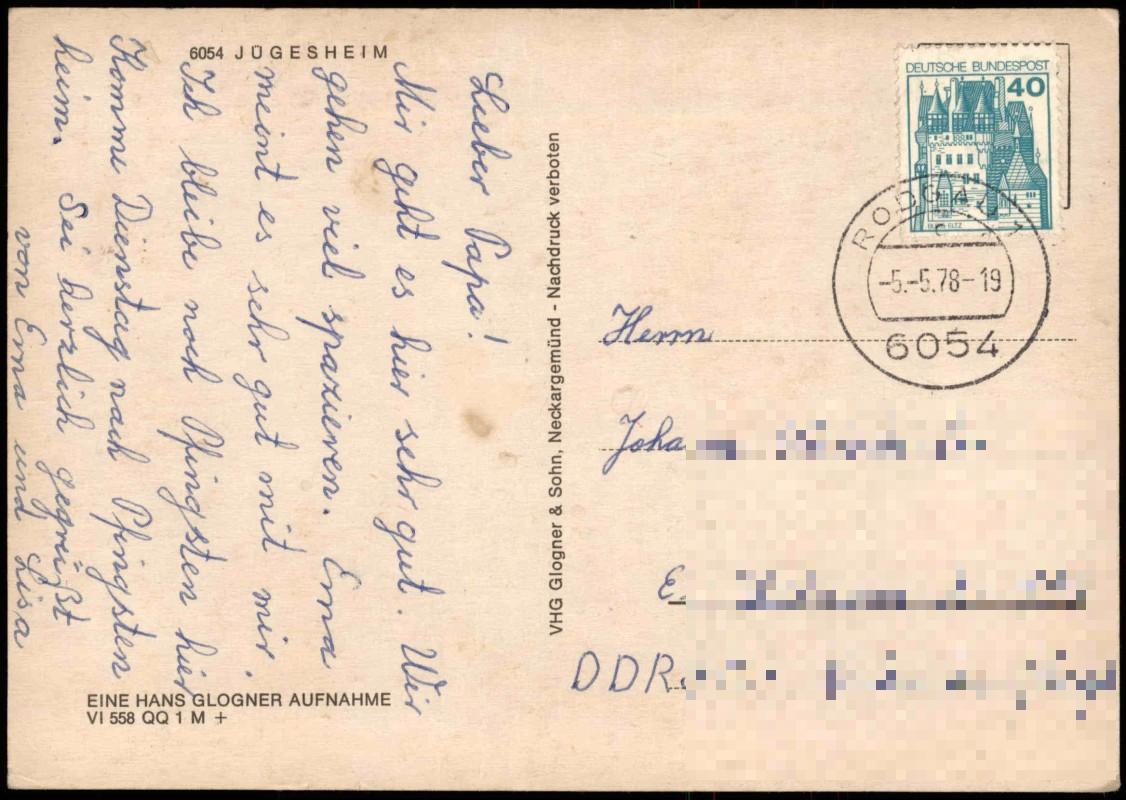 6054 JÜGESHEIM
Lieber Papa!
Mir geht es hier sehr gut. Wir
gehen viel spazieren. Erna
meint es sehr gut mit mir.
Ich bleibe noch Pfingsten hier
Komme Dienstag nach Pfingsten
heim. Sei herzlich gegrüßt
von Erna und Lisa
EINE HANS GLOGNER AUFNAHME
VI 558 QQ 1 M +
VHG Glogner & Sohn, Neckargemünd - Nachdruck verboten
DEUTSCHE BUNDESPOST
40
BURG ELTZ
RODGAU 1
c
-5.-5.78-19
6054
Herrn
DDR.